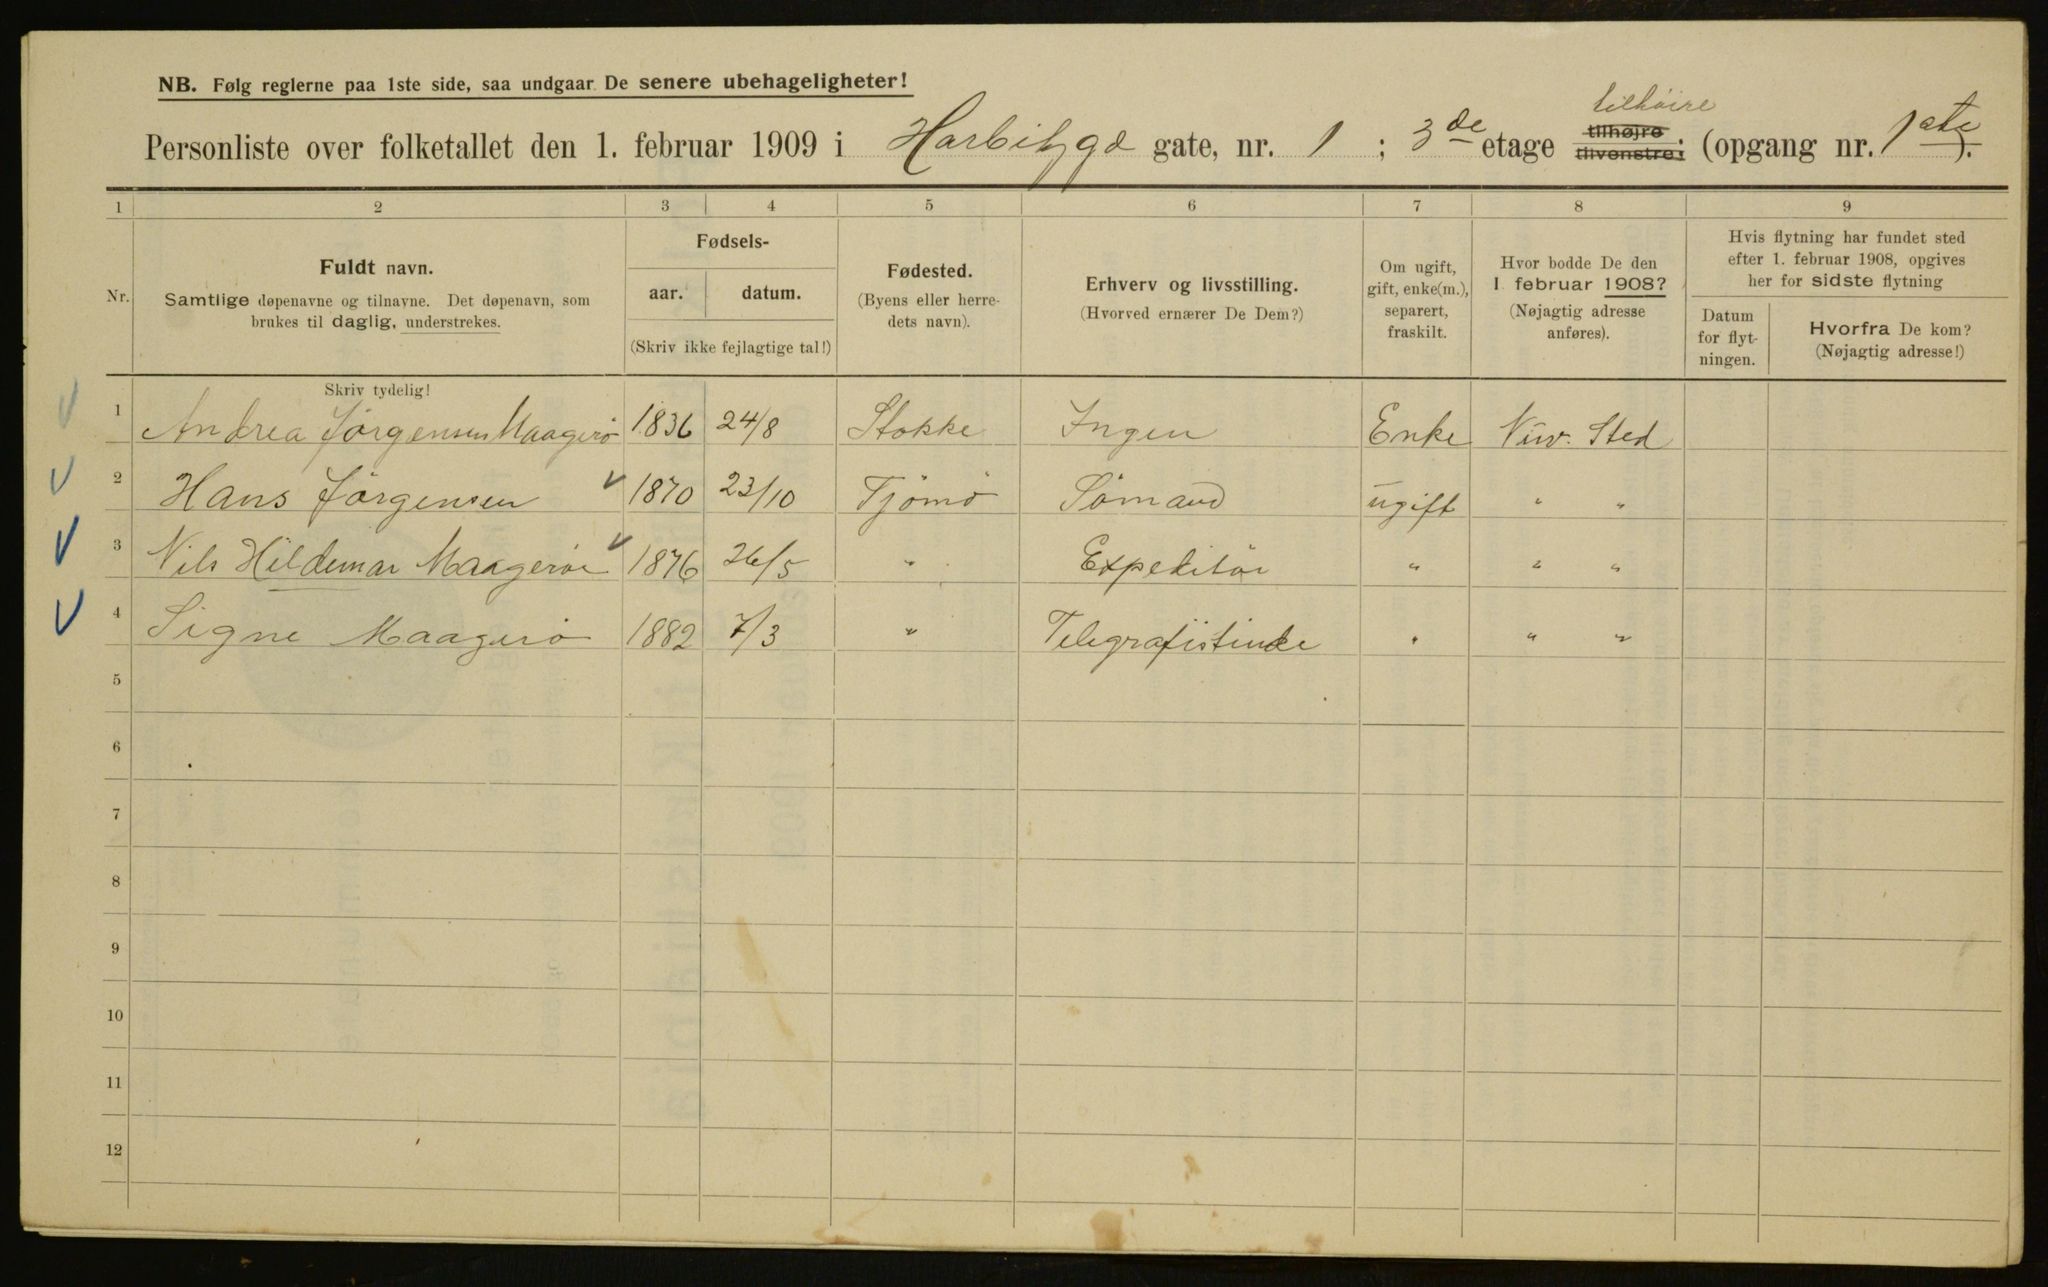 NB. Følg reglerne paa 1ste side, saa undgaar De senere ubehageligheter!
tilhöire
Personliste over folketallet den 1. februar 1909 i Harbitzgd gate, nr. 1 ; 3de etage tilhøjre tilvenstre; (opgang nr. 1ste).
1 2 3 4 5 6 7 8 9
Nr.
Fuldt navn.
Samtlige døpenavne og tilnavne. Det døpenavn, som
brukes til daglig, understrekes.
Fødsels-
aar. datum.
(Skriv ikke fejlagtige tal!)
Fødested.
(Byens eller herre-
dets navn).
Erhverv og livsstilling.
(Hvorved ernærer De Dem?)
Om ugift,
gift, enke(m.),
separert,
fraskilt.
Hvor bodde De den
1 februar 1908?
(Nøjagtig adresse
anføres).
Hvis flytning har fundet sted
efter 1. februar 1908, opgives
her for sidste flytning
Datum
for flyt-
ningen.
Hvorfra De kom?
(Nøjagtig adresse!)
Skriv tydelig!
1 Andrea Jörgensen Maagerö 1836 24/8 Stokke Ingen Enke Nuv. Sted
2 Hans Jörgensen 1870 23/10 Tjömö Sömand ugift " "
3 Nils Hildemar Maageröe 1876 26/5 " Expeditör " " "
4 Signe Maagerö 1882 7/3 " Telegrafistinde " " "
5
6
7
8
9
10
11
12